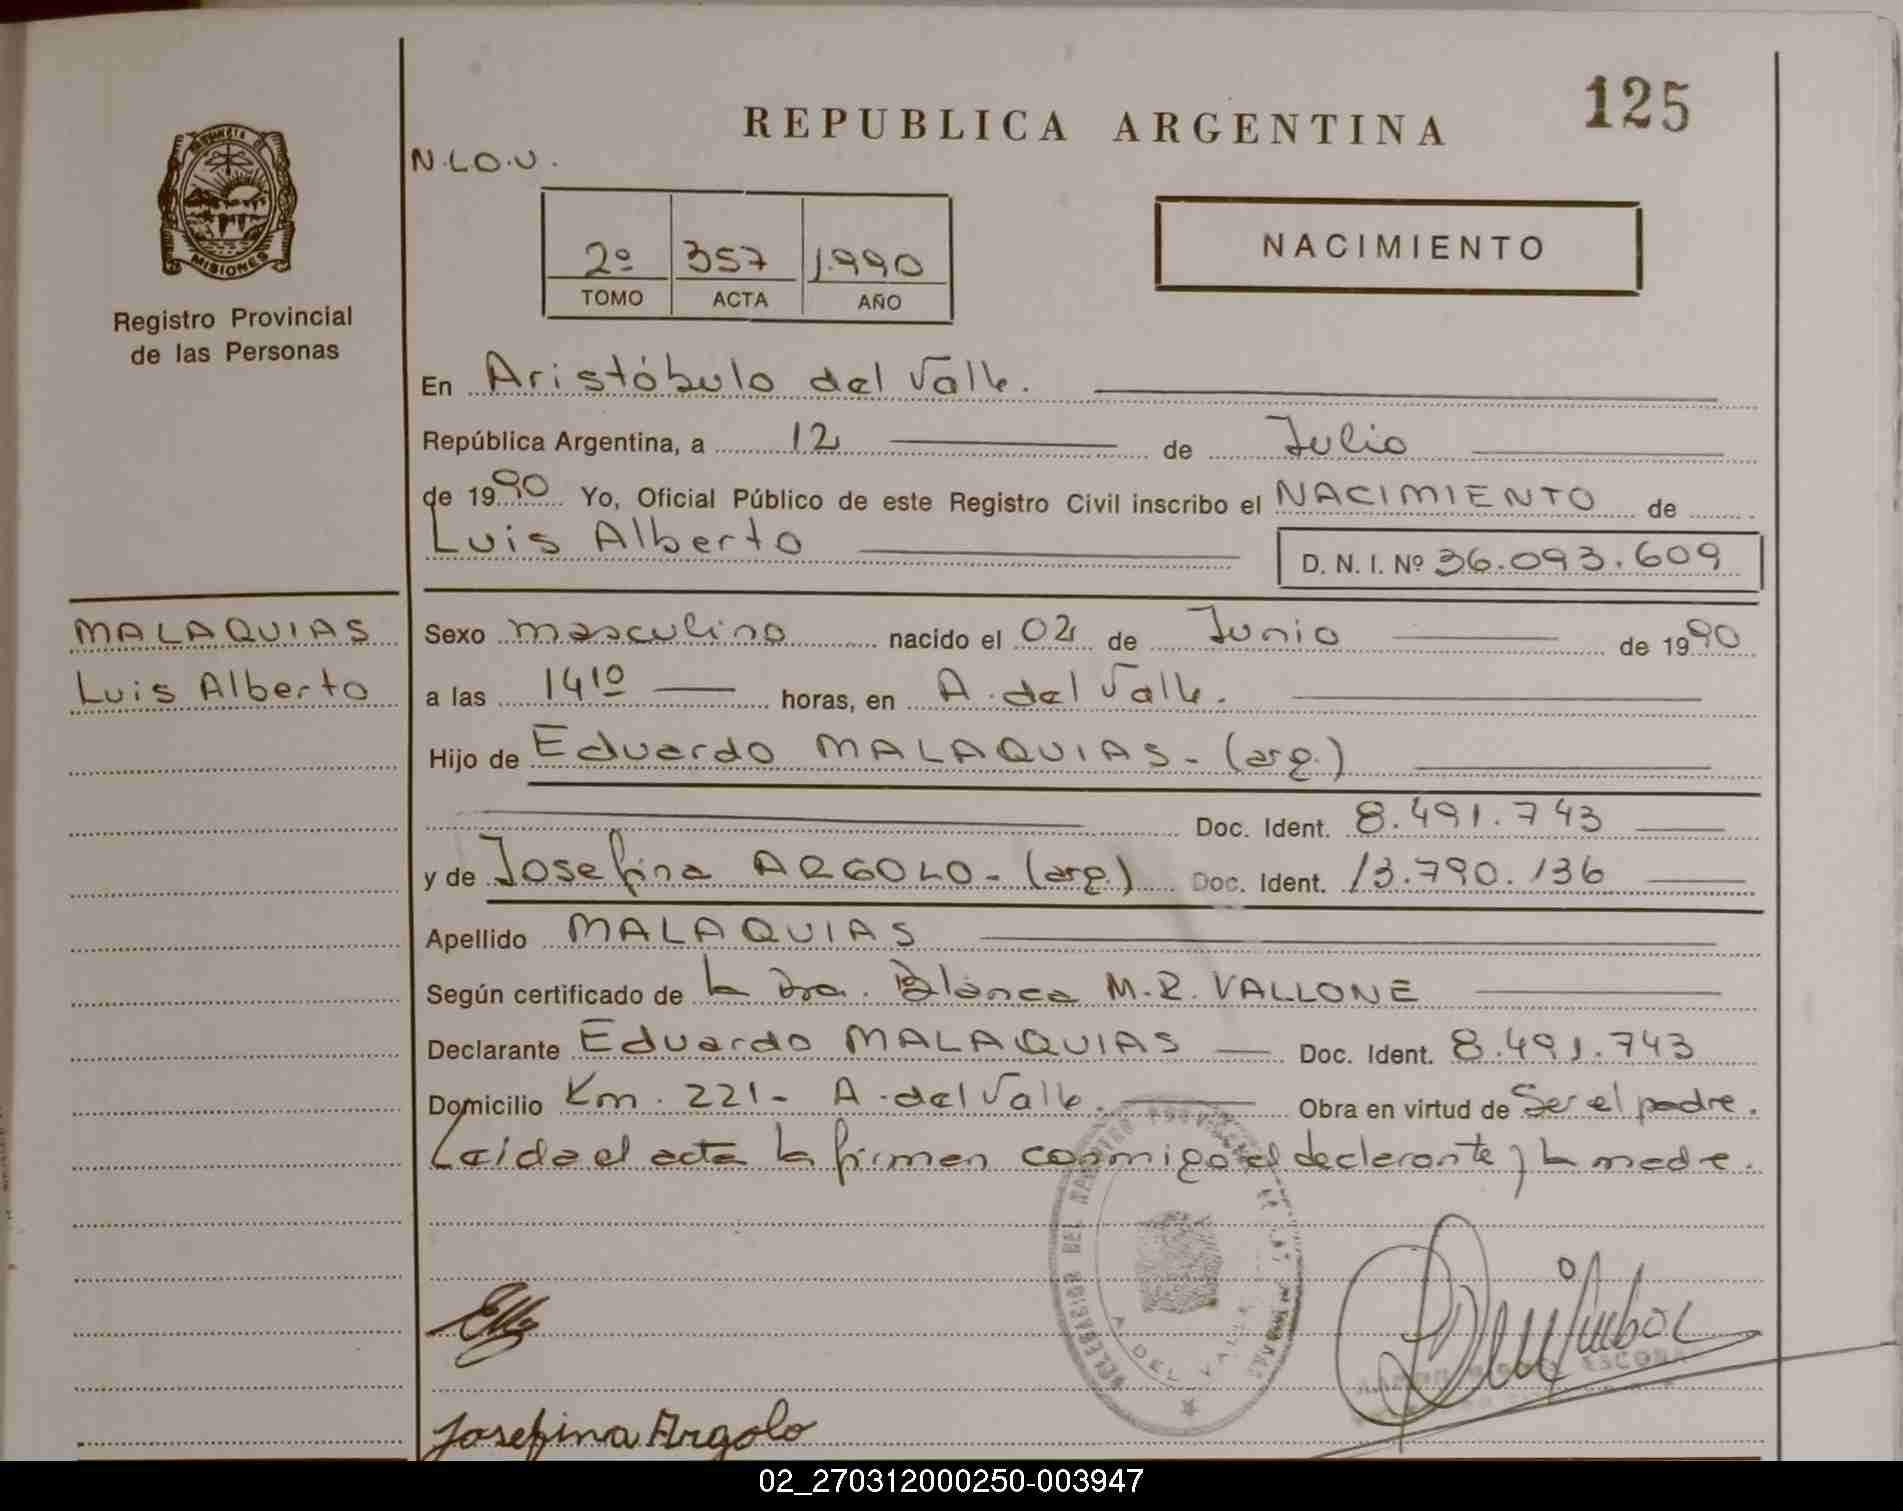 125
REPUBLICA ARGENTINA
N.LO.U.
PROVINCIA
MISIONES
Registro Provincial
de las Personas
2º 357 1.990
TOMO ACTA AÑO
NACIMIENTO
En Aristóbulo del Valle.
República Argentina, a 12 de Julio
de 1990 Yo, Oficial Público de este Registro Civil inscribo el NACIMIENTO de
Luis Alberto D. N. I. Nº 36.093.609
MALAQUIAS
Luis Alberto
Sexo masculino nacido el 02 de Junio de 1990
a las 14 10 horas, en A. del Valle.
Hijo de Eduardo MALAQUIAS - (arg.)
Doc. Ident. 8.491.743
y de Josefina ARGOLO - (arg.) Doc. Ident. 13.790.136
Apellido MALAQUIAS
Según certificado de la Dra. Blanca M.R. VALLONE
Declarante Eduardo MALAQUIAS Doc. Ident. 8.491.743
Domicilio Km. 221 - A. del Valle. Obra en virtud de Ser el padre.
Leida el acta la firman conmigo el declarante y la madre.
DELEGACION DEL REGISTRO PROVINCIAL DE LAS PERSONAS
A. DEL VALLE
ESCOBAR
Josefina Argolo
02_270312000250-003947